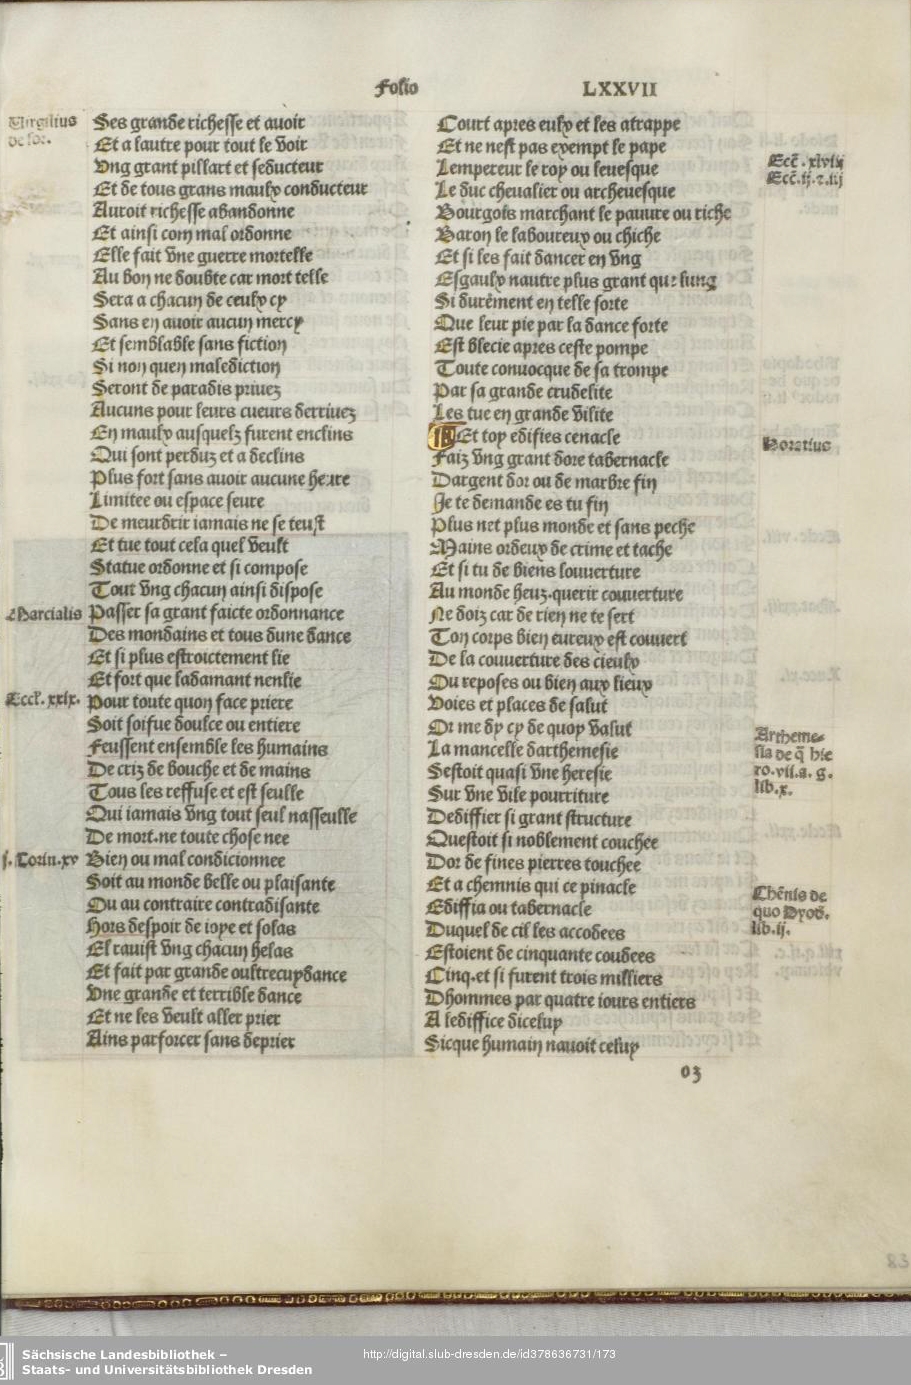 Folio LXXVII
Virgilius
Ses grande richesse et avoir
Et a lautre pour tout le voir
Vng grant pillart et seducteur
Et de tous grans maulx conducteur
Auroit richesse abandonne
Et ainsi com mal ordonne
Elle fait vne guerre mortelle
Au bon ne doubte car mort telle
Sera a chacun de ceulx cy
Sans en auoir aucun mercy
Et semblable sans fiction
Si non quen malediction
Seront de paradis priuez
Aucuns pour leurs cueurs derriuez
En maulx ausquelz furent enclins
Qui sont perduz et a declins
Plus fort sans auoir aucune heure
Limitee ou espace seure
De meurdrir iamais ne se teust
Et tue tout cela quel veult
Statue ordonne et si compose
Tout vng chacun ainsi dispose
Marcialis
Passer sa grant faicte ordonnance
Des mondains et tous dune dance
Et si plus estroictement lie
Et fort que ladamant nenlie
Eccl. xxix.
Pour toute quon face priere
Soit soifue doulce ou entiere
Feussent ensemble les humains
De criz de bouche et de mains
Tous les reffuse et est seulle
Qui iamais vng tout seul nasseulle
De mort.ne toute chose nee
j. Corin.xv
Bien ou mal condicionnee
Soit au monde belle ou plaisante
Ou au contraire contradisante
Hors despoir de ioye et solas
El rauist vng chacun helas
Et fait par grande oultrecuydance
Vne grande et terrible dance
Et ne les veult aller prier
Ains parforcer sans deprier
Court apres eulx et les atrappe
Et ne nest pas exempt le pape
Lempereur le roy ou leuesque
Le duc cheualier ou archeuesque
Ecc̄. xlvix
Ecc̄.ij.⁊.iij
Bourgois marchant le pauure ou riche
Baron le laboureux ou chiche
Et si les fait dancer en vng
Esgaulx nautre plus grant que lung
Si durement en telle sorte
Que leur pie par la dance forte
Est blecie apres ceste pompe
Toute conuocque de sa trompe
Par sa grande crudelite
Les tue en grande vilite
¶ Et toy edifies cenacle
Horatius
Faiz vng grant dore tabernacle
Dargent dor ou de marbre fin
Je te demande es tu fin
Plus net plus monde et sans peche
Mains ordeux de crime et tache
Et si tu de biens louuerture
Au monde heuz.querir couuerture
Ne doiz car de rien ne te sert
Ton corps bien eureux est couuert
De la couuerture des cieulx
Ou reposes ou bien aux lieux
Voies et places de salut
Or me dy cy de quoy valut
La mancelle darthemesie
Sestoit quasi vne heresie
Artheme-
sia de q̄ hie
ro.vii.a. g.
lib.x.
Sur vne vile pourriture
Dediffier si grant structure
Questoit si noblement couchee
Dor de fines pierres touchee
Et a chemnis qui ce pinacle
Ediffia ou tabernacle
Chēnis de
quo Dyod.
lib.ij.
Duquel de cil les accodees
Estoient de cinquante coudees
Cinq.et si furent trois milliers
Dhommes par quatre iours entiers
A lediffice dicelux
Sicque humain nauoit celuy
o3
83
Sächsische Landesbibliothek –
Staats- und Universitätsbibliothek Dresden
http://digital.slub-dresden.de/id378636731/173